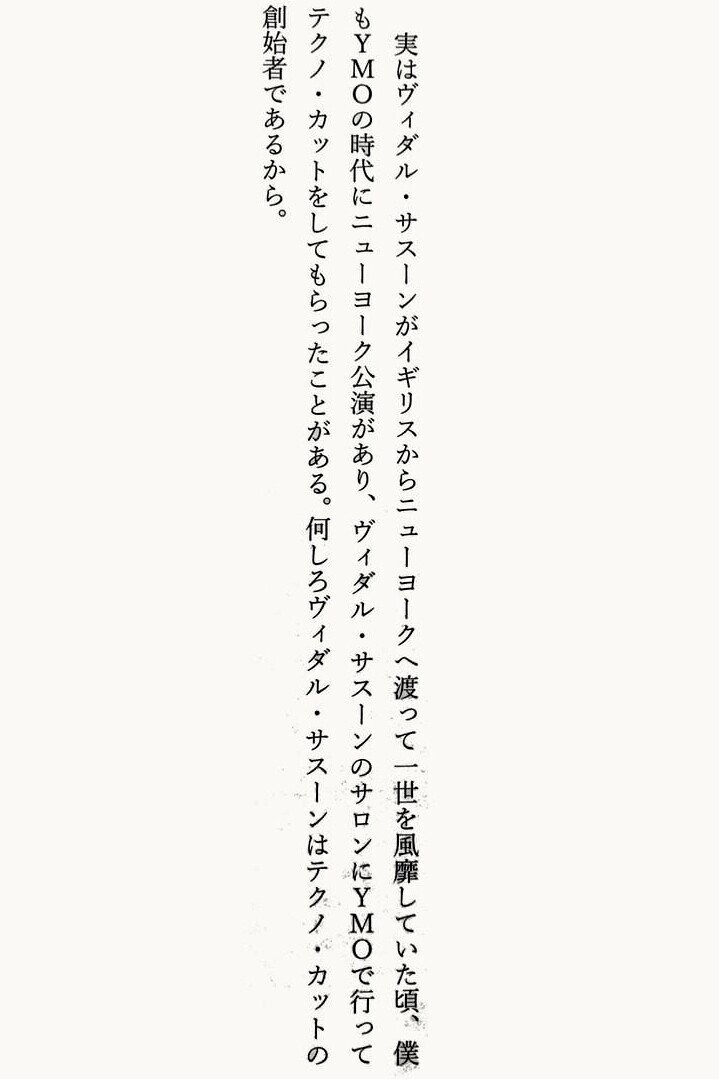 実はヴィダル・サスーンがイギリスからニューヨークへ渡って一世を風靡していた頃、僕
もＹＭＯの時代にニューヨーク公演があり、ヴィダル・サスーンのサロンにＹＭＯで行って
テクノ・カットをしてもらったことがある。何しろヴィダル・サスーンはテクノ・カットの
創始者であるから。